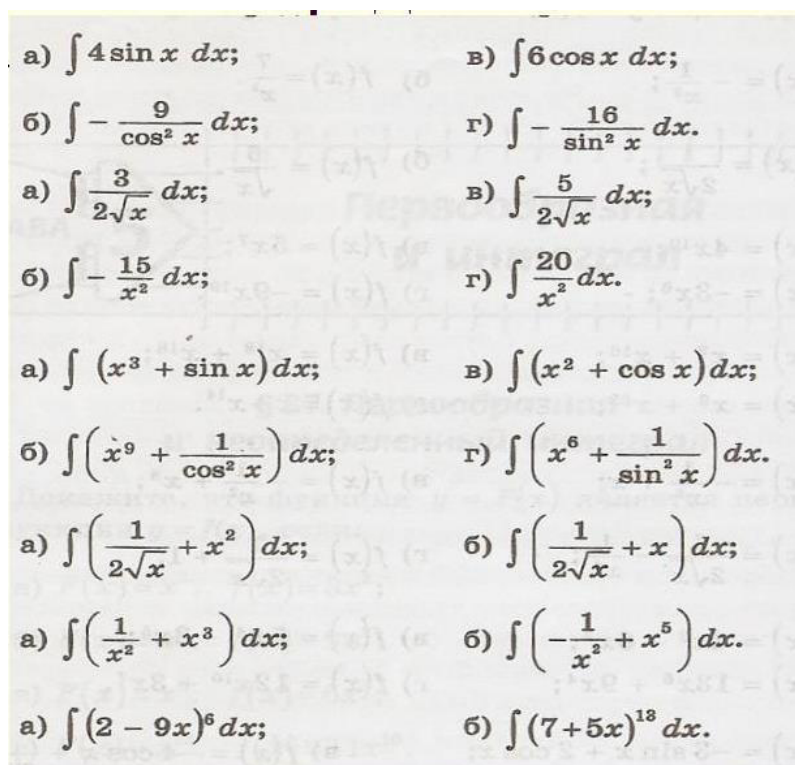 а) ∫ 4 sin x dx; в) ∫ 6 cos x dx;
б) ∫ − 9/cos² x dx; г) ∫ − 16/sin² x dx.
а) ∫ 3/(2√x) dx; в) ∫ 5/(2√x) dx;
б) ∫ − 15/x² dx; г) ∫ 20/x² dx.
а) ∫ (x³ + sin x) dx; в) ∫ (x² + cos x) dx;
б) ∫ (x⁹ + 1/cos² x) dx; г) ∫ (x⁶ + 1/sin² x) dx.
а) ∫ (1/(2√x) + x²) dx; б) ∫ (1/(2√x) + x) dx;
а) ∫ (1/x² + x³) dx; б) ∫ (−1/x² + x⁵) dx.
а) ∫ (2 − 9x)⁶ dx; б) ∫ (7 + 5x)¹³ dx.